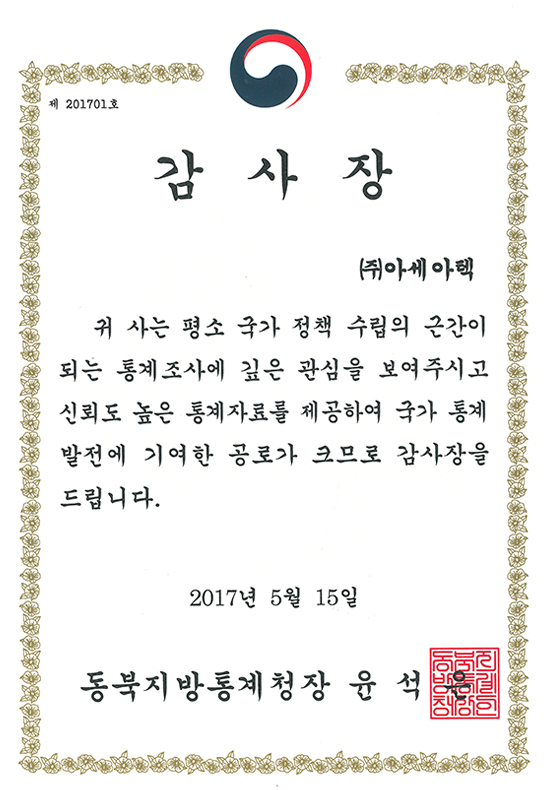 제 201701호
감 사 장
(주)아세아텍
귀 사는 평소 국가 정책 수립의 근간이
되는 통계조사에 깊은 관심을 보여주시고
신뢰도 높은 통계자료를 제공하여 국가 통계
발전에 기여한 공로가 크므로 감사장을
드립니다.
2017년 5월 15일
동북지방통계청장 윤 석 은